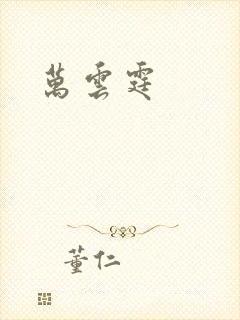 萬雲霆
董仁